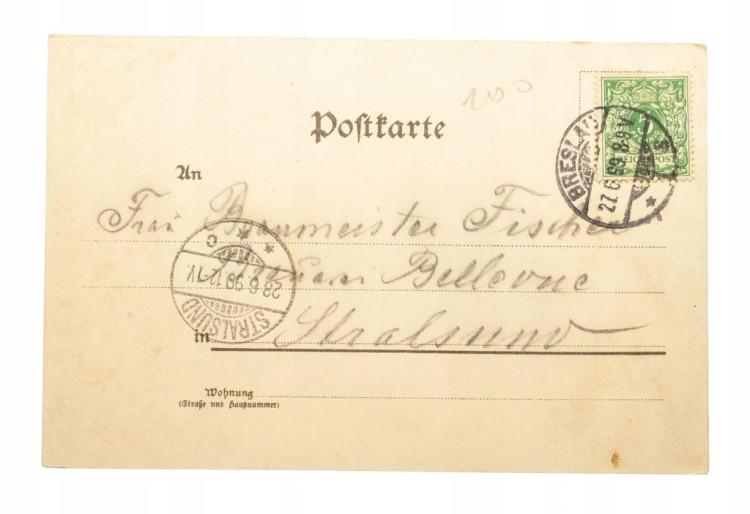 100
REICHSPOST
BRESLAU
27.6.99 8-9V
Postkarte
An
Frau Baumeister Fischer
Bellevue
STRALSUND
28.6.99.12-1V
C
in Stralsund
Wohnung
(Straße und Hausnummer)